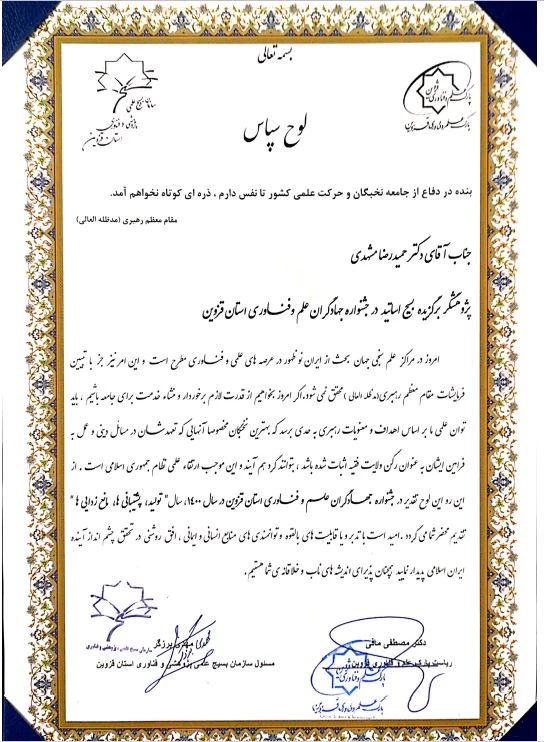 بسمه تعالی
سازمان بسیج علمی
پژوهشی و فناوری
استان قزوین
پارک علم و فناوری قزوین
پارک علم و فناوری قزوین
لوح سپاس
بنده در دفاع از جامعه نخبگان و حرکت علمی کشور تا نفس دارم ، ذره ای کوتاه نخواهم آمد.
مقام معظم رهبری (مدظله العالی)
جناب آقای دکتر حمیدرضا مشهدی
پژوهشگر برگزیده بسیج اساتید در جشنواره جهادگران علم و فناوری استان قزوین
امروز در مراکز علم سنجی جهان بحث از ایران نوظهور در عرصه های علمی و فناوری مطرح است و این امر نیز جز با تبیین
فرمایشات مقام معظم رهبری (مدظله العالی) محقق نمی شود. اگر امروز بخواهیم از قدرت لازم برخوردار و منشاء خدمت برای جامعه باشیم ، باید
توان علمی ما بر اساس اهداف و معنویات رهبری به حدی برسد که بهترین نخبگان مخصوصا آنهایی که تعهدشان در مسائل دینی و عمل به
فرامین ایشان به عنوان رکن ولایت فقیه اثبات شده باشد ، بتوانند گرد هم آیند و این موجب ارتقاء علمی نظام جمهوری اسلامی است . از
این رو این لوح تقدیر در جشنواره جهادگران علم و فناوری استان قزوین در سال ۱۴۰۰، سال" تولید، پشتیبانی ها، مانع زدایی ها "
تقدیم محضر شما می گردد. امید است با تدبر و با قابلیت های بالقوه و توانمندی های منابع انسانی و ایمانی ، افق روشنی در تحقق چشم انداز آینده
ایران اسلامی پدیدار نمایید همچنان پذیرای اندیشه های ناب و خلاقانه ی شما هستیم.
دکتر مصطفی مافی
ریاست پارک علم و فناوری قزوین
پارک علم و فناوری قزوین
سازمان بسیج علمی پژوهشی و فناوری
مهدی برزگر
مسئول سازمان بسیج علمی پژوهشی و فناوری استان قزوین